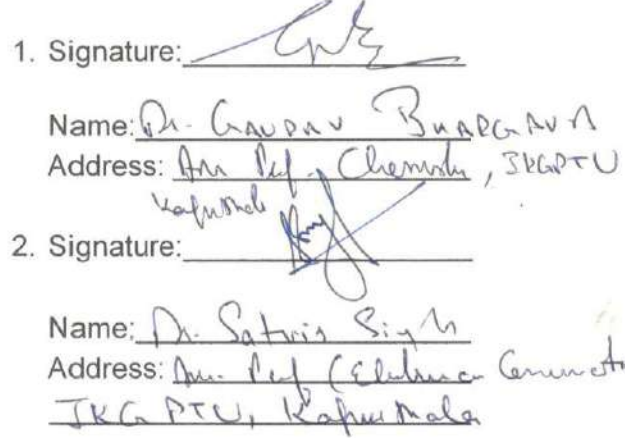 1. Signature:
Name: Dr. GAURAV BHARGAVA
Address: Ass Prof. Chemistry, IKGPTU
Kapurthala
2. Signature:
Name: Dr. Satvir Singh
Address: Ass. Prof (Electronics Communicat
IKG PTU, Kapurthala